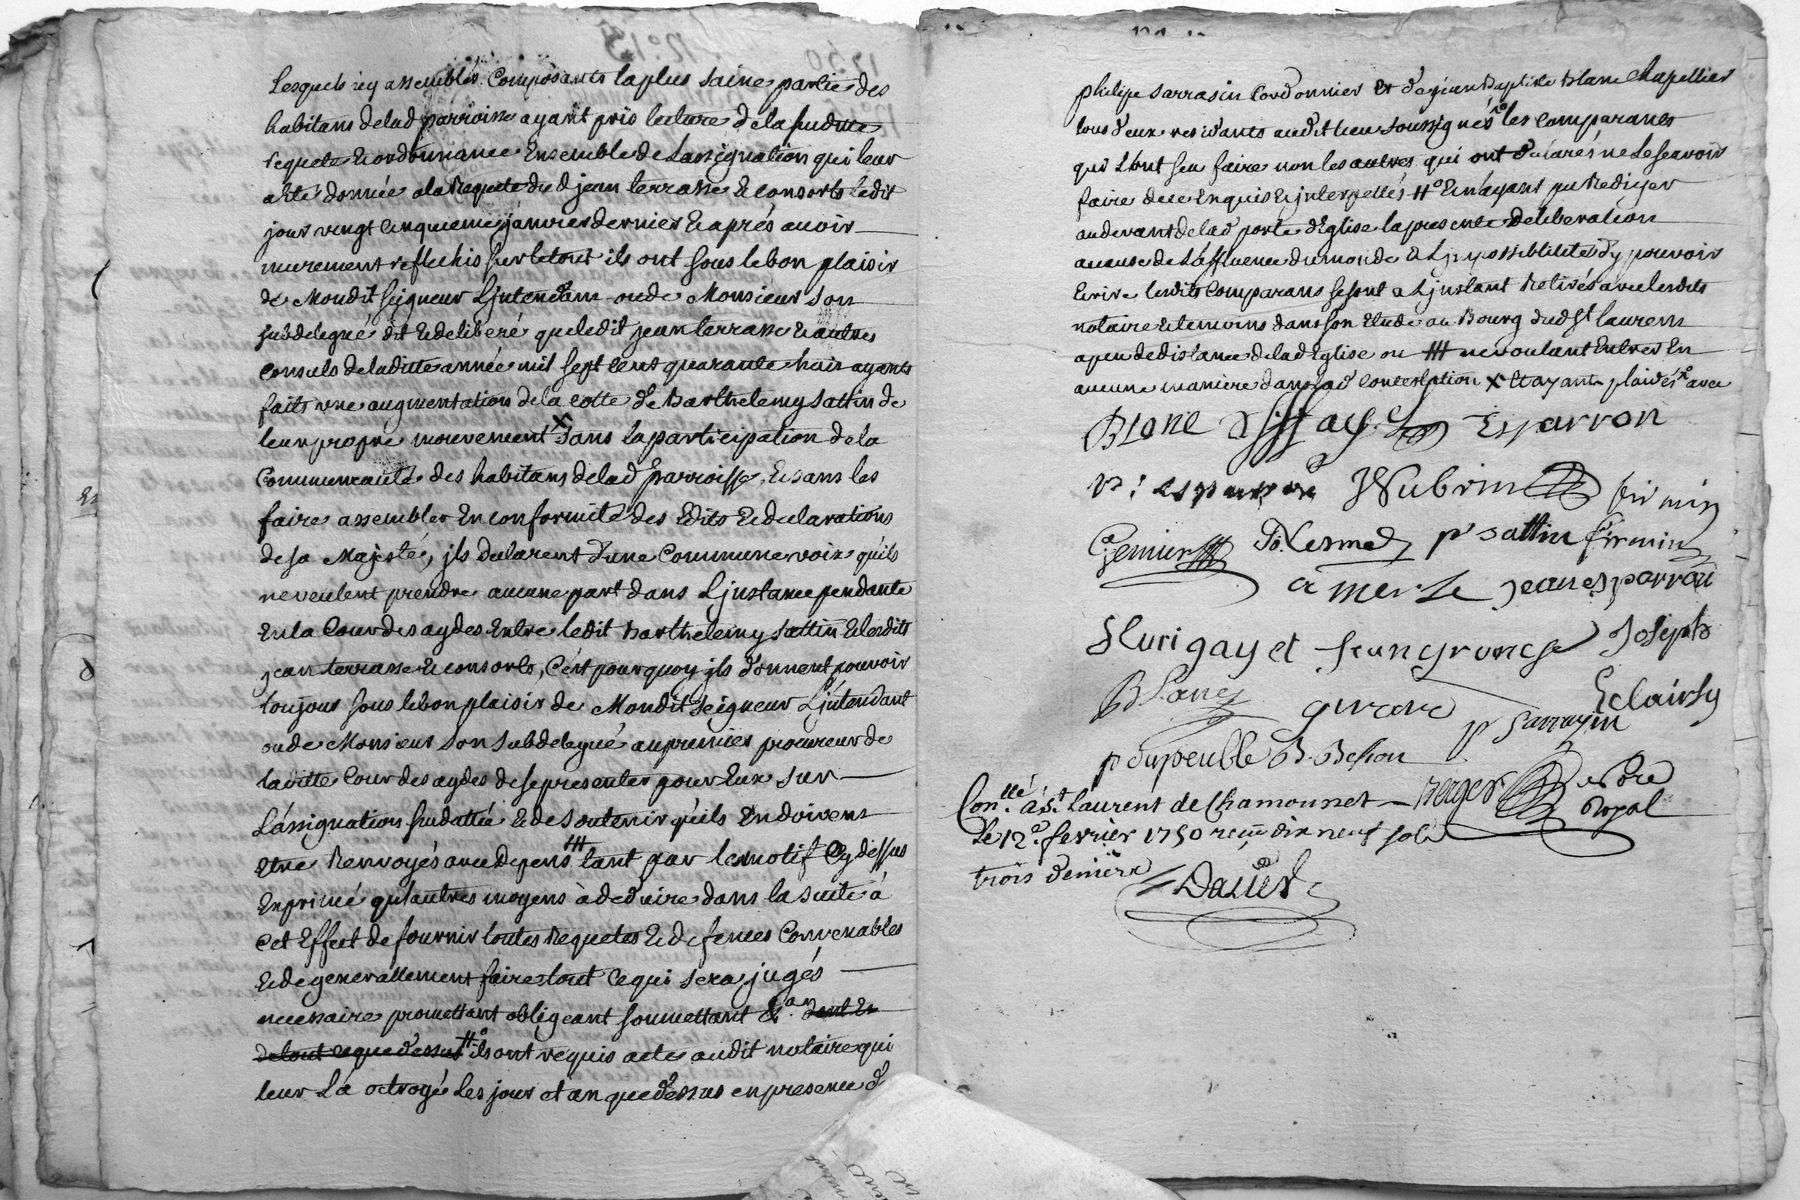 Lesquels icy assemblés Composants la plus saine partie des
habitans delad parroisse ayant pris lecture de la susditte
requete et ordonnance Ensemble de Lassignation qui leur
a été donnée a la Requete dud jean terrasse et consorts Ledit
jour vingt cinquieme janvier dernier et aprés avoir
murement reflechis sur le tout ils ont sous le bon plaisir
de Mondit seigneur Ljntendant ou de Monsieur son
subdelegué dit et deliberé que ledit jean terrasse et autres
consuls de laditte année mil sept cent quarante huit ayants
faits une augmentation de la cotte de Barthelemy sattin de
leur propre mouvement X sans la participation de la
Communeauté des habitans delad parroisse, et sans les
faire assembler En conformité des Edits et declarations
de sa Majesté, jls declarent d'une Commune voix quils
ne veulent prendre aucune part dans Ljnstance pendante
En la Cour des aydes Entre ledit Barthelemy sattin et lesdits
jean terrasse et consorts, C'est pourquoy jls donnent pouvoir
toujour sous le bon plaisir de Mondit seigneur Ljntendant
ou de Monsieur son subdelegué au premier procureur de
laditte Cour des aydes de se presenter pour Eux sur
Lassignation susdattée et de soutenir quils En doivent
Etre Renvoyés avec depens # tant par le motif Cy dessus
Exprimé qu'autres moyens à deduire dans la suite à
Cet Effect de fournir toutes Requetes et defences Convenables
et de generallement faire tout ce qui sera jugés
necessaire promettant obligeant soumettant &a dont En
de tout ce que dessus # ils ont requis acte audit notaire qui
leur L'a octroyé Les jour et an que dessus en presence de
philipe sarrasin Cordonnier et de jean Baptiste Blanc Chapellier
tous deux residants audit lieu soussignés les comparants
qui L'ont sçu faire non les autres qui ont declarés ne Le sçavoir
faire de ce Enquis et jnterpellés # et n'ayant pu Rediger
au devant de lad porte d'Eglise la presente deliberation
a cause de L'affluence du monde et Ljmpossibilité d'y pouvoir
Ecrire lesdits Comparans se sont a Ljnstant Retirés avec lesdits
notaire et temoins dans son Etude au Bourg dud St laurens
a peu de distance delad Eglise ou # ne voulant Entrer En
aucune maniere dans lad Contestation X et ayants plaidés avec
Blanc Esparron
Esparron firmin
p sattin firmin
a merle jean esparron
fleuri gayet Joseph
Blanc girard p Sarrazin
p dupeuble B. Besson
Berger no.re Royal
Con.llé à St Laurent de Chamousset
Le 12e fevrier 1750 reçu dix neuf sols
trois deniers